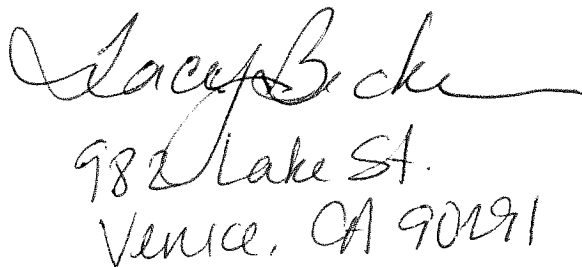 Stacy Becker
982 Lake St.
Venice, CA 90291